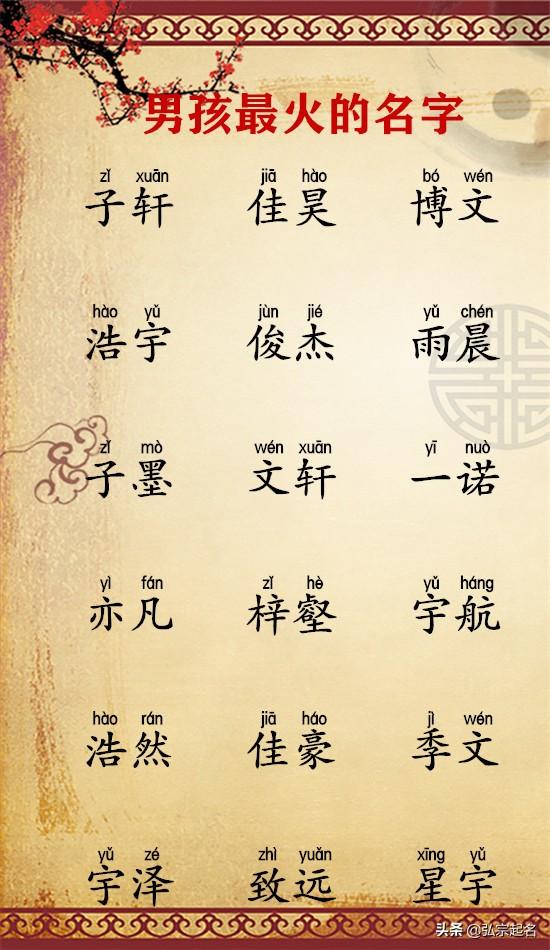 男孩最火的名字
zǐ xuān jiā hào bó wén
子轩 佳昊 博文
hào yǔ jùn jié yǔ chén
浩宇 俊杰 雨晨
zǐ mò wén xuān yī nuò
子墨 文轩 一诺
yì fán zǐ hè yǔ háng
亦凡 梓壑 宇航
hào rán jiā háo jì wén
浩然 佳豪 季文
yǔ zé zhì yuǎn xīng yǔ
宇泽 致远 星宇
头条 @弘宗起名